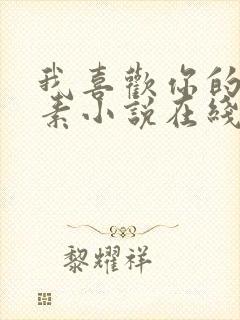 我喜歡你的
素小說在綫
黎耀祥